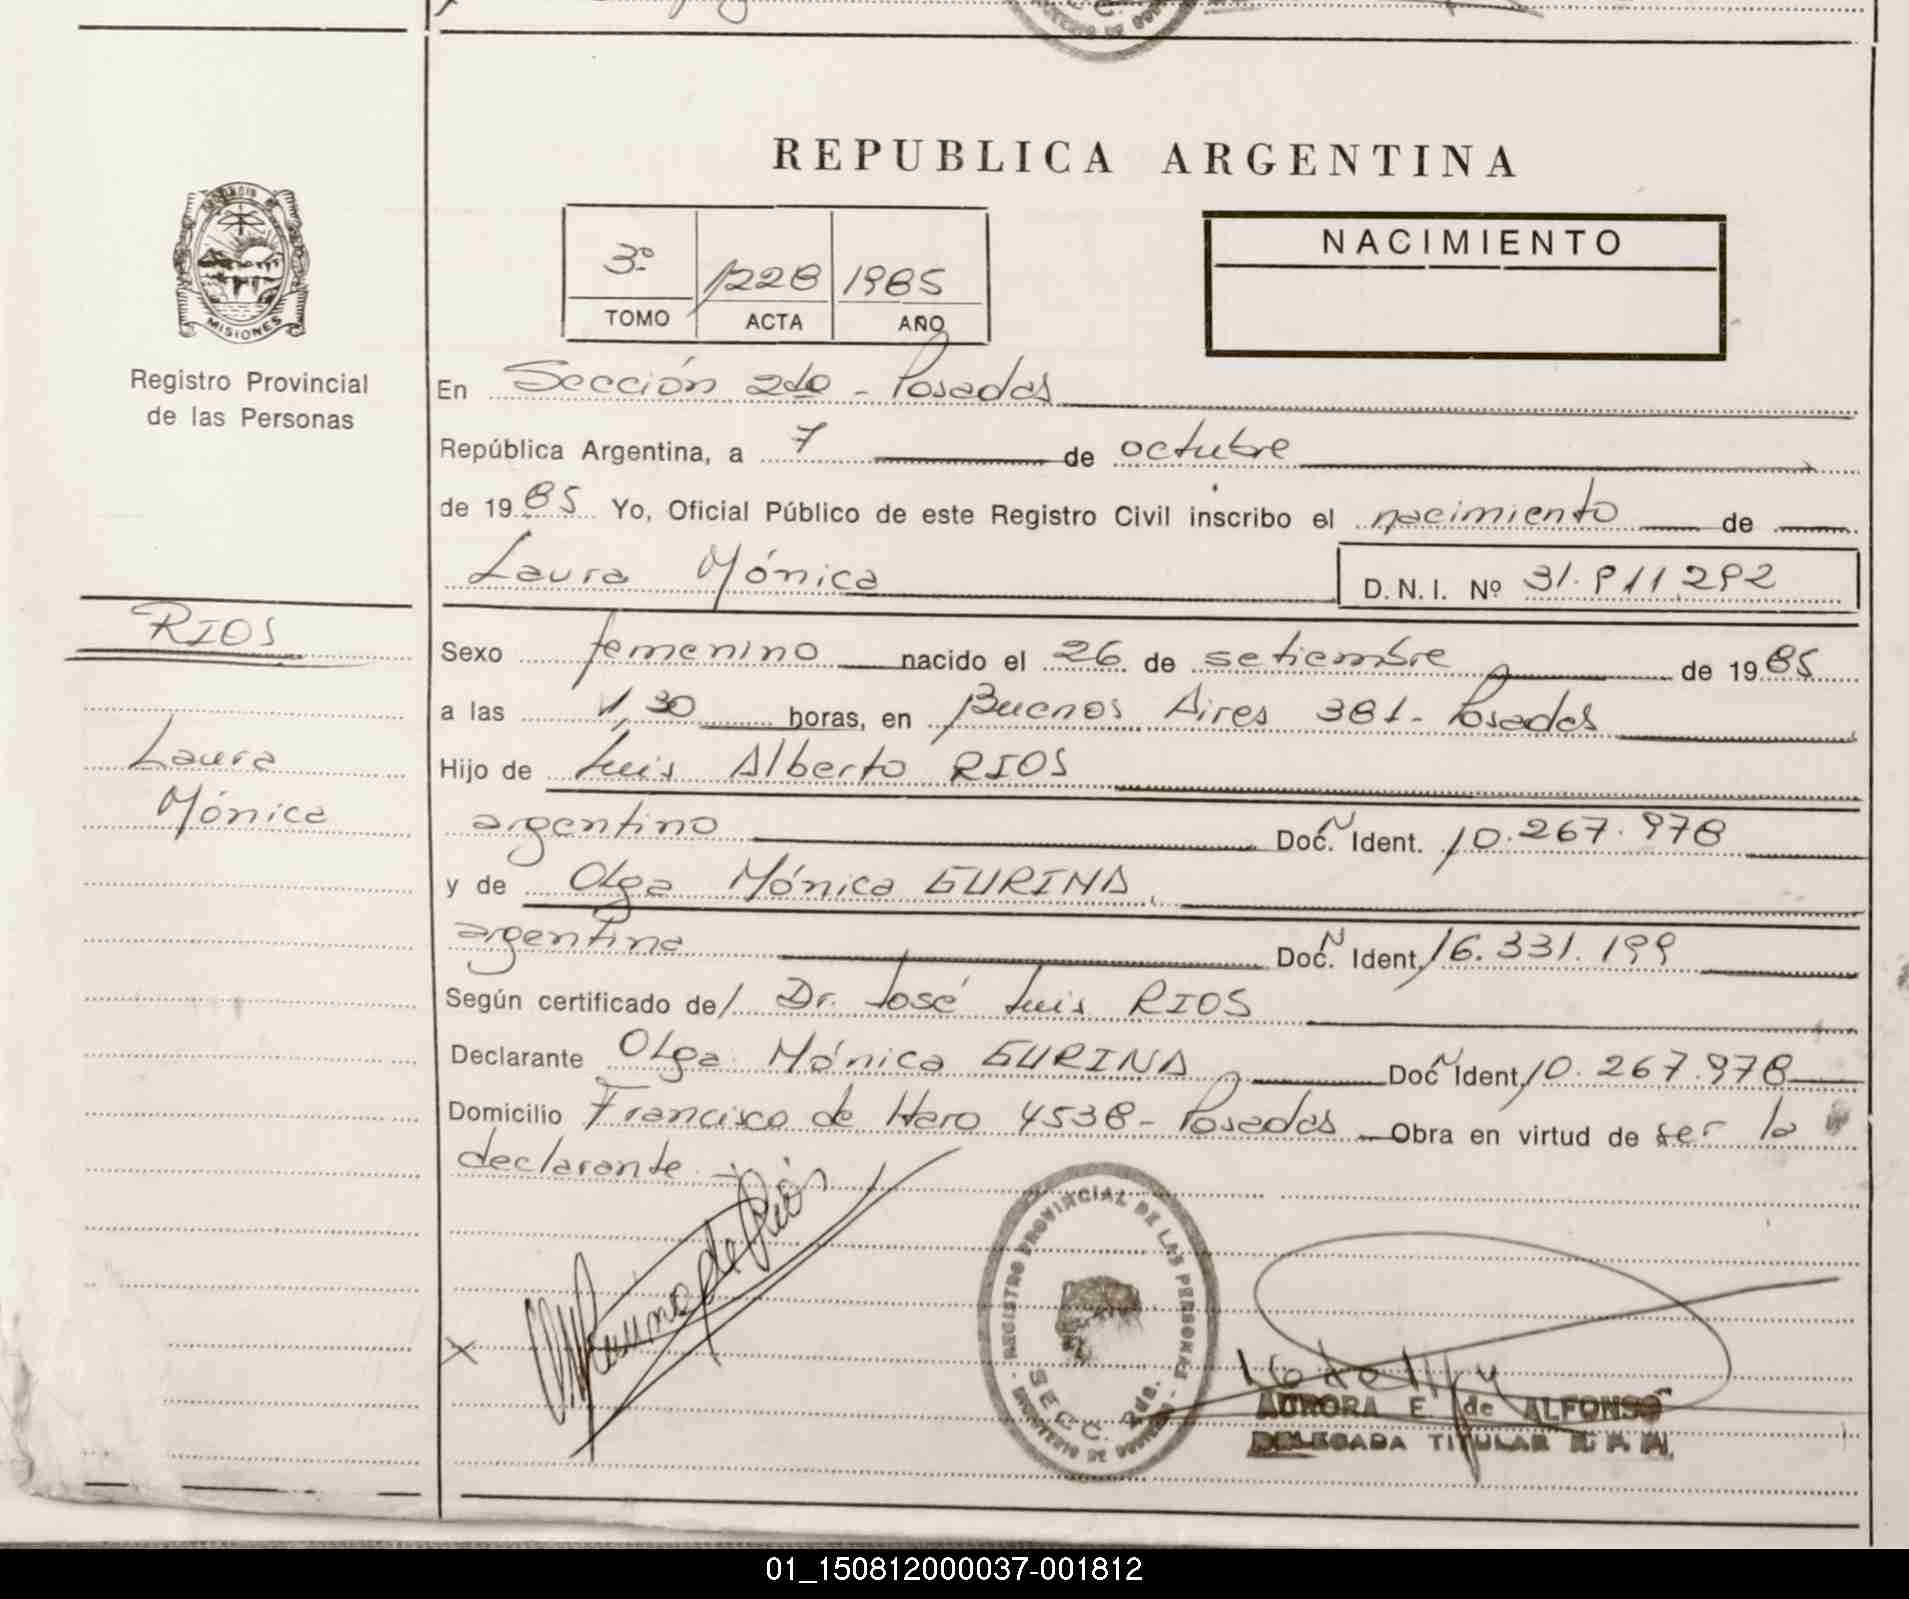 REPUBLICA ARGENTINA
MISIONES
Registro Provincial
de las Personas
3º 1228 1985
TOMO ACTA AÑO
NACIMIENTO
En Sección 2da - Posadas
República Argentina, a 7 de octubre
de 1985 Yo, Oficial Público de este Registro Civil inscribo el nacimiento de
Laura Mónica
D.N.I. Nº 31.911.292
RIOS
Laura
Mónica
Sexo femenino nacido el 26 de setiembre de 1985
a las 1,30 horas, en Buenos Aires 381- Posadas
Hijo de Luis Alberto RIOS
argentino Doc. N Ident. 10.267.978
y de Olga Mónica GURINA
argentina Doc. N Ident. 16.331.199
Según certificado de/ Dr. José Luis RIOS
Declarante Olga Mónica GURINA Doc N Ident. 10.267.978
Domicilio Francisco de Haro 4538- Posadas Obra en virtud de ser la
declarante.-
de Ríos
REGISTRO PROVINCIAL DE LAS PERSONAS
SECC. 2da.
MINISTERIO DE GOBIERNO
AURORA E. de ALFONSO
DELEGADA TITULAR R. P. P.
01_150812000037-001812